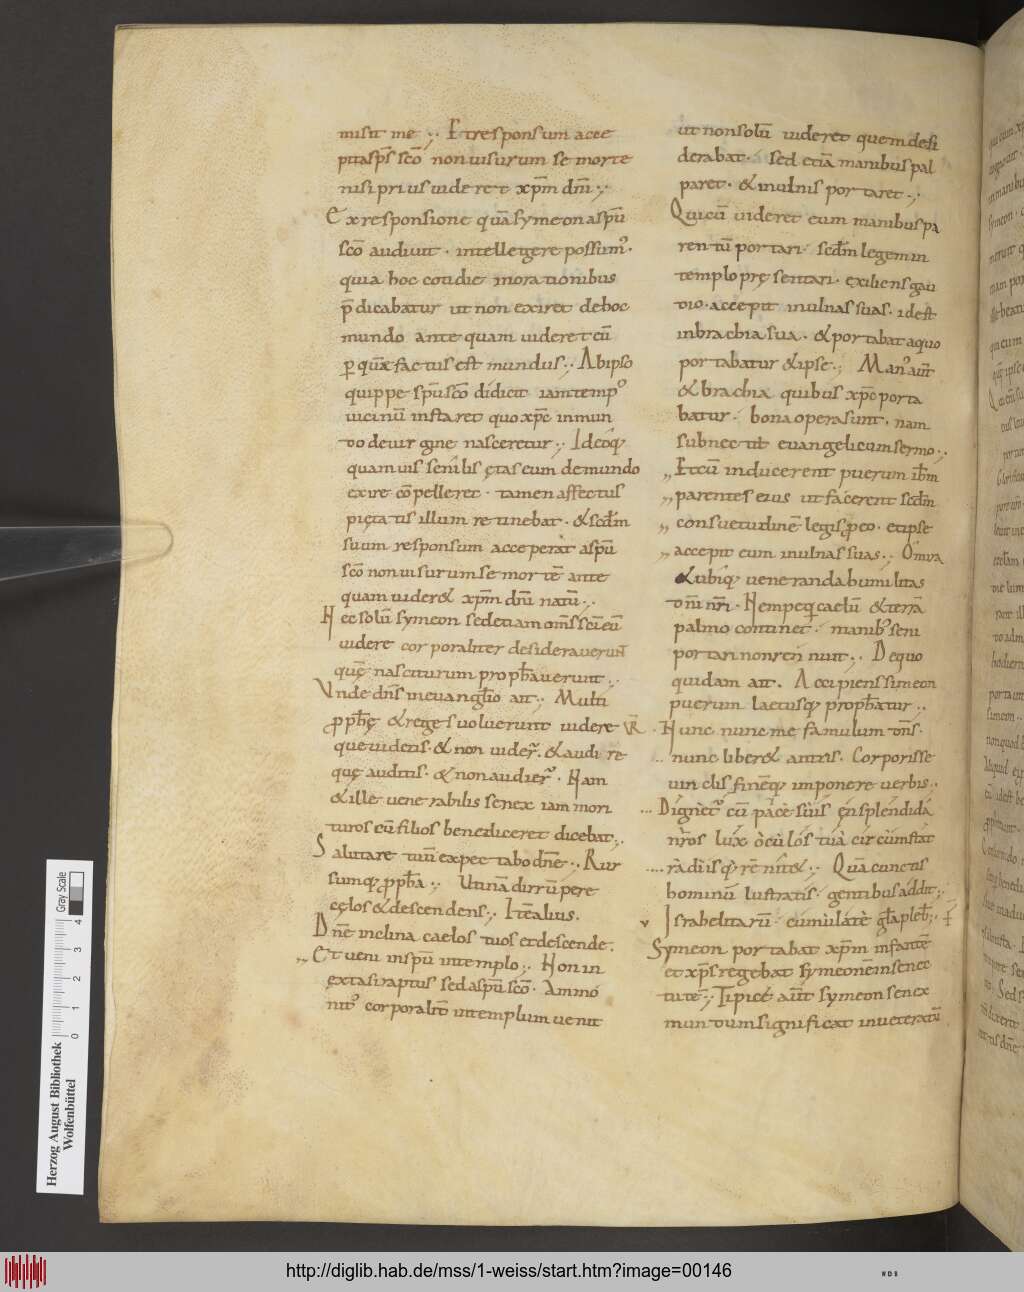 misit me ;· Et responsum acce
pit a sp̄s sc̄o non uisurum se morte
nisi prius uideret xp̄m dn̄i ;·
Ex responsione quā symeon a sp̄u
sc̄o audiuit · intellegere possum᾽ ·
quia hoc cotidie in orationibus
p̄dicabatur ut non exiret de hoc
mundo ante quam uideret eū
ꝑ quē factus est mundus ;· Ab ipso
quippe sp̄u sc̄o didicit iam temp᾽
uicinū instaret quo xp̄c in mun
do de uirgine nasceretur ;· Ideoq;
quamuis senilis ętas eum de mundo
exire cōpelleret · tamen affectus
pietatis illum retinebat · & scd̄m
suum responsum acceperat a sp̄u
sc̄o non uisurum se mortē ante
quam uider& xp̄m dn̄i natū ;·
Nec solū symeon sed etiam om̄s sc̄i eū
uidere corporaliter desiderauerunt
quē nasciturum prophauerunt ;·
Vnde dn̄s in euanglio ait ;· Multi
pp̄hę & reges uoluerunt uidere
que uidetis · & non uider̄ · & audire
quę auditis · & non audier̄ · Nam
& ille uenerabilis senex iam mori
turos eū filios benediceret dicebat ;·
Salutare tuū expectabo dn̄e ;· Rur
sumq; pp̄ha ;· Utinā dirrūpere
cęlos & descendens ;· Itē alius ·
Dn̄e inclina caelos tuos et descende ·
Et ueni in sp̄u in templo ;· Non in
extasi raptus sed a sp̄u sc̄o · Ammo
nit᾽ corporalit̄ in templum uenit
ut non solū uideret quem desi
derabat · sed etiā manibus pal
paret · & in ulnis portaret ;·
Qui cū uideret eum manibus pa
rentū portari · scd̄m legem in
templo pręsentari · exiliens gau
dio · accepit in ulnas suas · id est
in brachia sua · & portabat a quo
portabatur & ipse ;· Man᾽ aūt
& brachia quibus xp̄c porta
batur · bona opera sunt · nam
subnectit euangelicum sermo ;·
Et cū inducerent puerum ih̄m
parentes eius ut facerent scd̄m
consuetudinē legis ꝑ eo · et ipse
accepit eum in ulnas suas ;· O mira
& ubiq; ueneranda humilitas
dn̄i nr̄i · Nempe q; caelū & terrā
palmo continet · manib᾽ seni
portari non rennuit ;· De quo
quidam ait · Accipiens simeon
puerum laetusq; prophatur ;·
VR̄ · Nunc nunc me famulum dn̄s ·
nunc liber& artus · Corporisse
uinclis finēq; imponere uerbis ;·
Dignet᾽ cū pace suis en splendida
nr̄os lux oculos tua circumstat
radiisq; renit& ;· Quā cunctis
hominū lustratis · gentibus addit ;·
Israhelitarū cumulatē gl̄a pleb̄ ;·
Symeon portabat xp̄m infantē
et xp̄s regebat symeonē in senec
tutē ;· Tipice aūt symeon senex
mundum significat inueteratū
Herzog August Bibliothek
Wolfenbüttel
Gray Scale
0 1 2 3 4
http://diglib.hab.de/mss/1-weiss/start.htm?image=00146